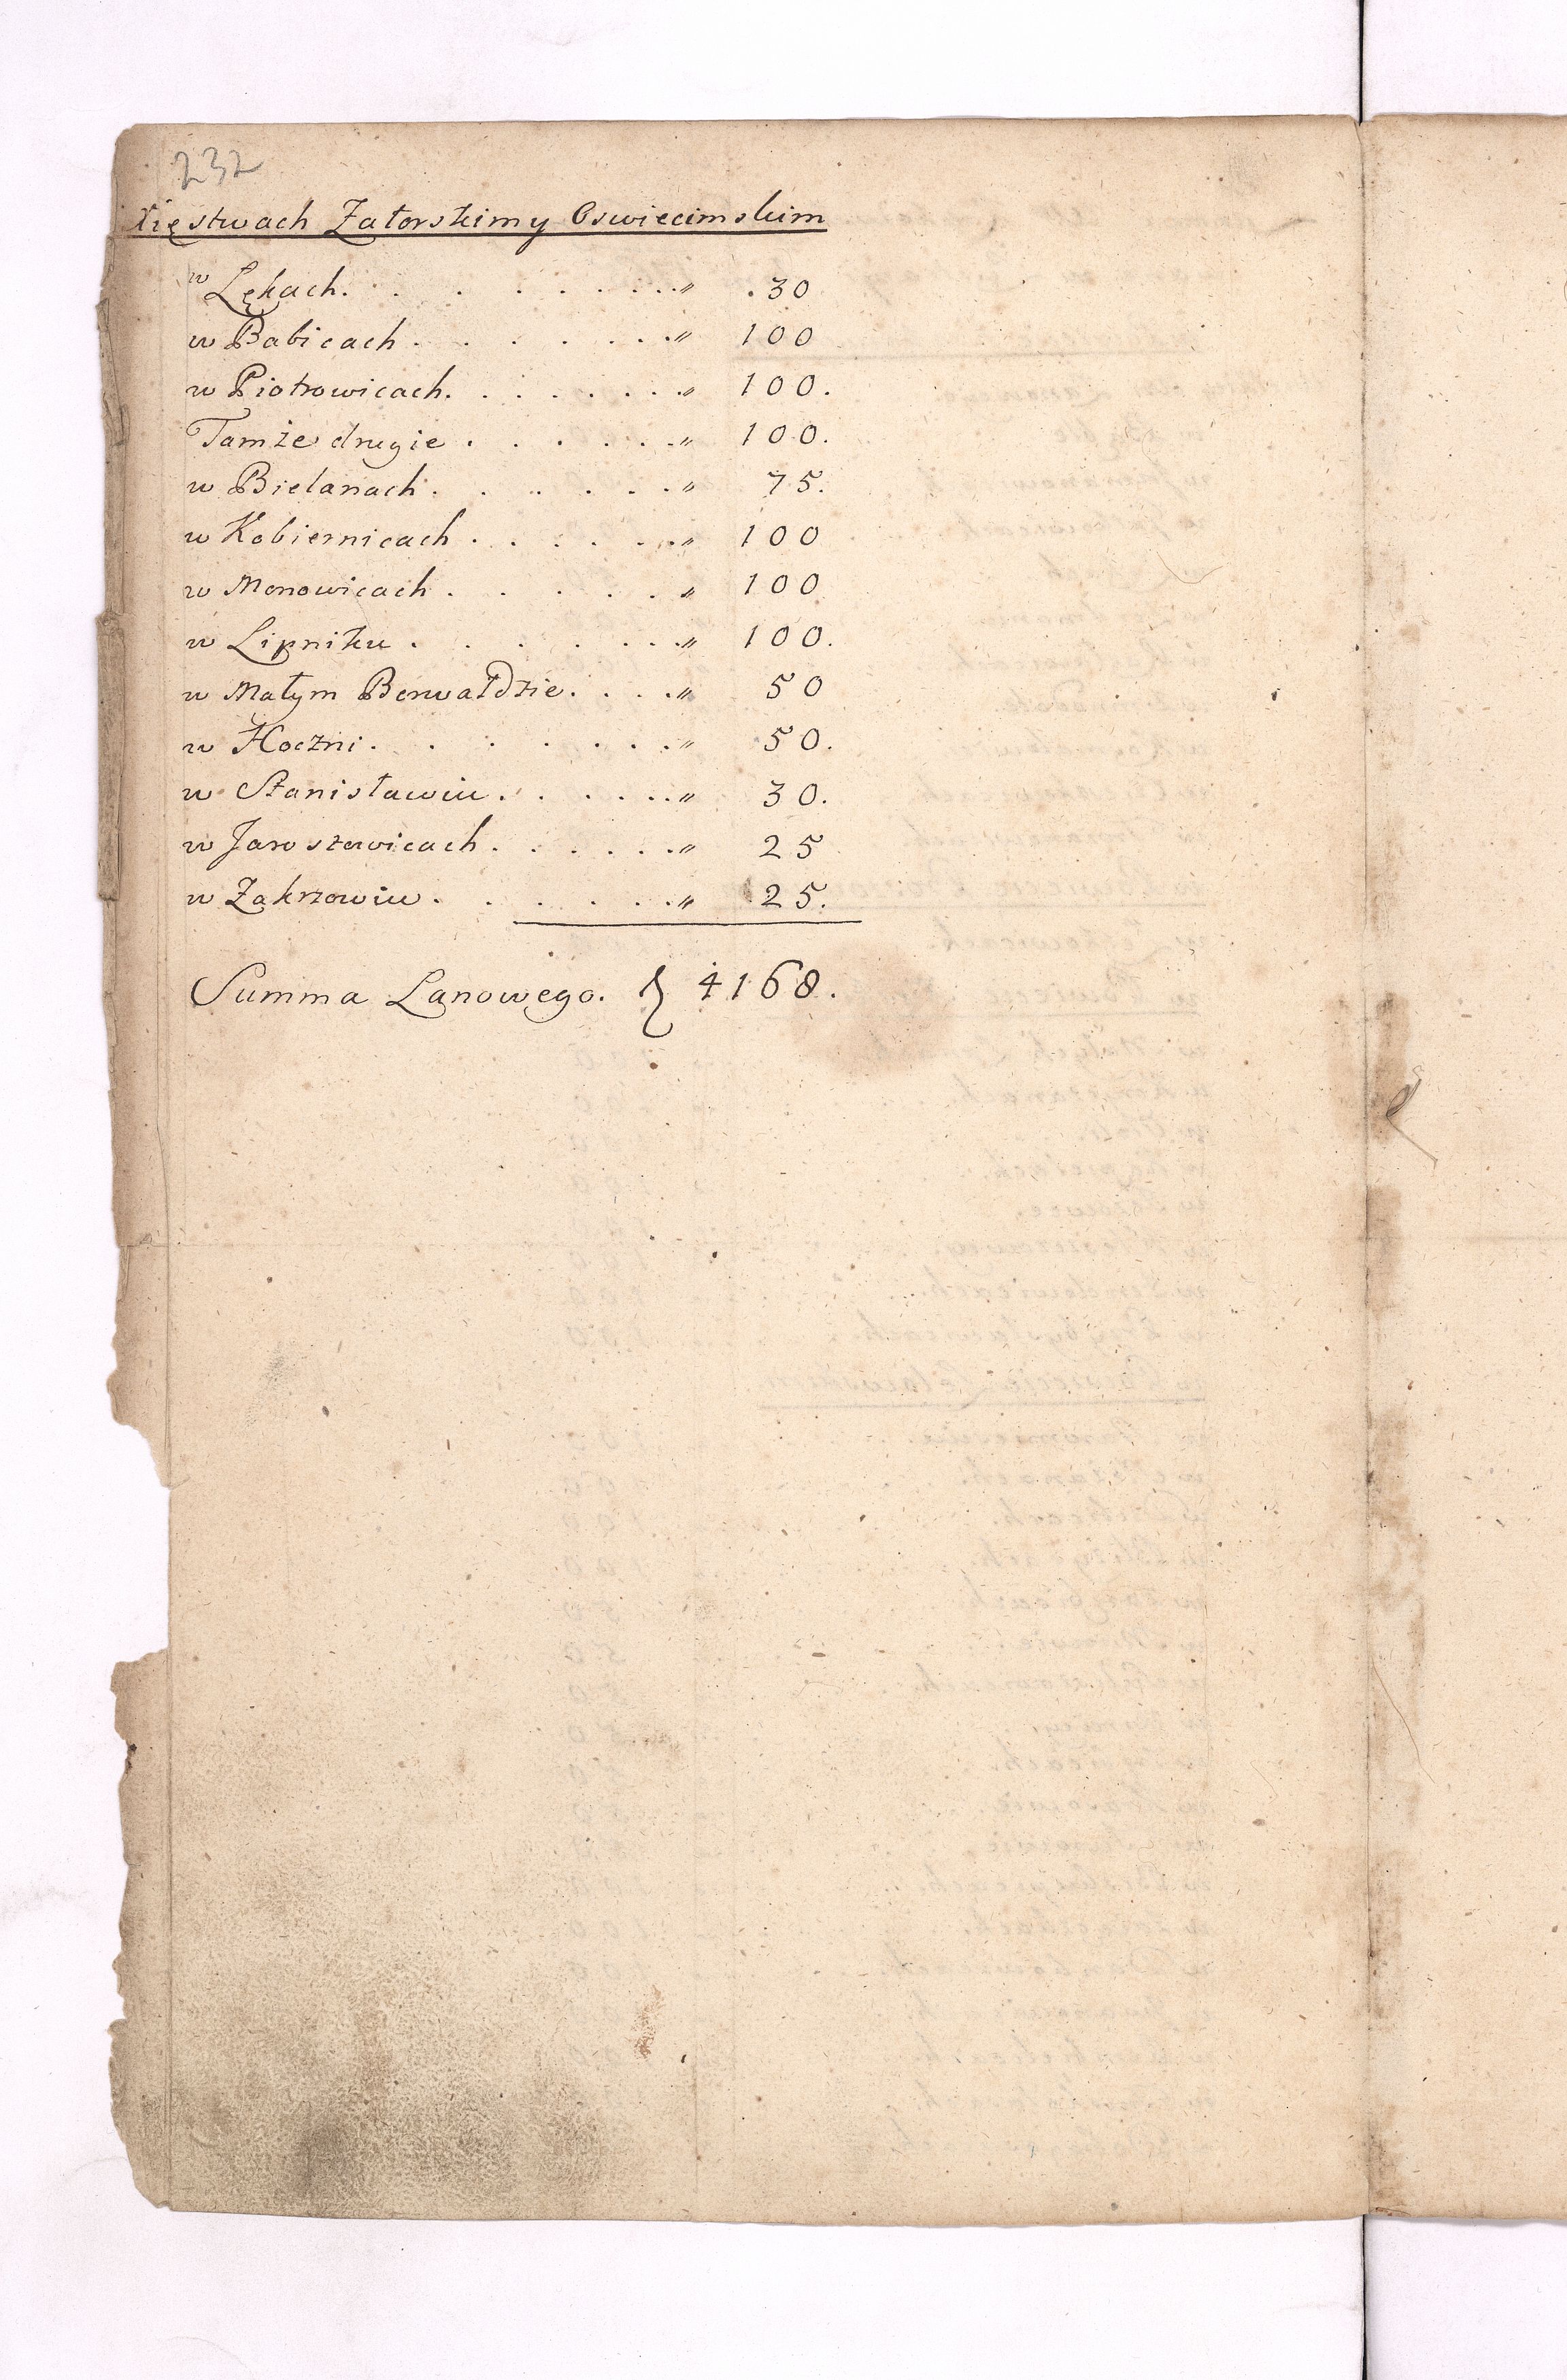 232
Xięstwach Zatorskim y Oswiecimskim
w Lękach. . . . . . . . . . „ . 30
w Babicach . . . . . . . . „ 100
w Piotrowicach. . . . . . . . „ 100.
Tamże drugie . . . . . . . „ 100.
w Bielanach . . . . . . . „ 75.
w Kobiernicach . . . . . . . „ 100
w Monowicach . . . . . . „ 100
w Lipniku . . . . . . . . „ 100.
w Małym Berwałdzie. . . . . „ 50
w Hoczni. . . . . . . . „ 50.
w Stanisławiu . . . . . . . „ 30.
w Jaroszowicach . . . . . . . „ 25
w Zakrzowiu . . . . . . . „ 25.
Summa Lanowego. } 4168.